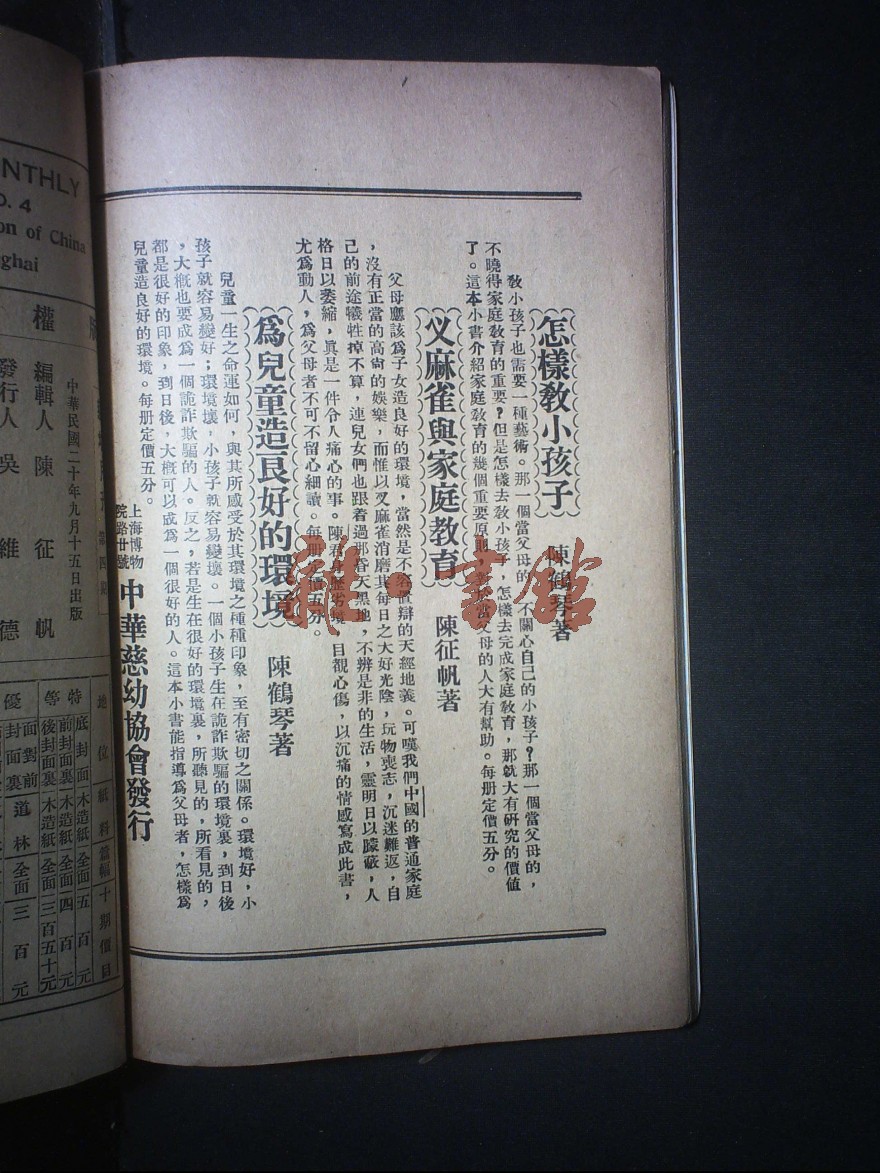 怎樣教小孩子 陳鶴琴著
教小孩子也需要一種藝術。那一個當父母的,不關心自己的小孩子?那一個當父母的,
不曉得家庭教育的重要?但是怎樣去教小孩子,怎樣去完成家庭教育,那就大有研究的價値
了。這本小書介紹家庭教育的幾個重要原則,對於當父母的人大有幫助。每册定價五分。
叉麻雀與家庭教育 陳征帆著
父母應該爲子女造良好的環境,當然是不容置辯的天經地義。可嘆我們中國的普通家庭
,沒有正當的高尙的娛樂,而惟以叉麻雀消磨其每日之大好光陰,玩物喪志,沉迷難返,自
己的前途犧牲掉不算,連兒女們也跟着過那昏天黑地,不辨是非的生活,靈明日以朦蔽,人
格日以萎縮,眞是一件令人痛心的事。陳君身歷劣境,目覩心傷,以沉痛的情感寫成此書,
尤爲動人,爲父母者不可不留心細讀。每册定價五分。
爲兒童造良好的環境 陳鶴琴著
兒童一生之命運如何,與其所感受於其環境之種種印象,至有密切之關係。環境好,小
孩子就容易變好;環境壞,小孩子就容易變壞。一個小孩子生在詭詐欺騙的環境裏,到日後
,大槪也要成爲一個詭詐欺騙的人。反之,若是生在很好的環境裏,所聽見的,所看見的,
都是很好的印象,到日後,大槪可以成爲一個很好的人。這本小書能指導爲父母者,怎樣爲
兒童造良好的環境。每册定價五分。
上海博物
院路廿號
中華慈幼協會發行
雜·書館
NTHLY
O. 4
on of China
ghai
權
中華民國二十年九月十五日出版
編輯人 陳征帆
發行人 吳維德
地位 紙料 篇幅 十期價目
特等 底封面 木造紙 全面 五百元
前封面裏 木造紙 全面 四百元
後封面裏 木造紙 全面 三百五十元
優 面對前封面裏 道林 全面 三百元